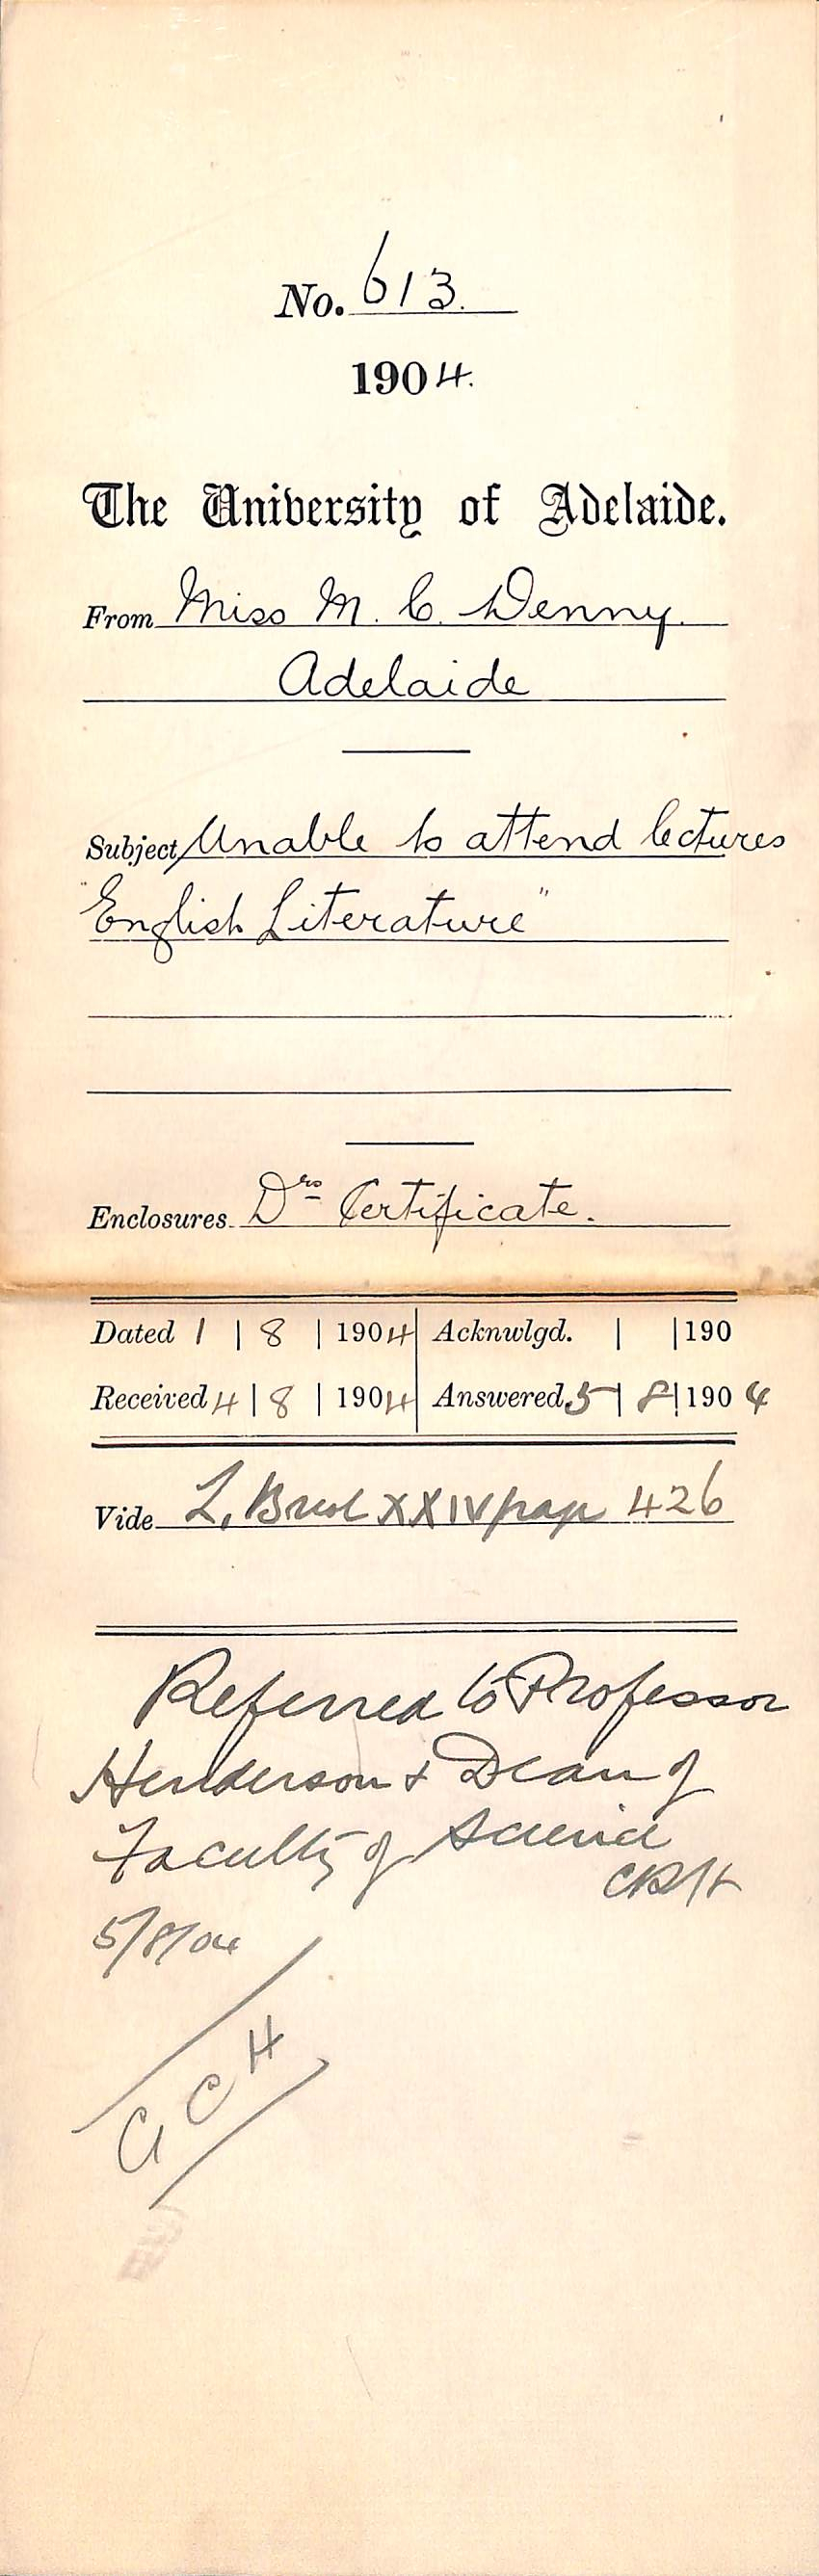 No. 613.
1904.
The University of Adelaide.
From Miss M. C. Denny.
Adelaide
Subject Unable to attend lectures
"English Literature"
Enclosures. Drs Certificate.
Dated 1 | 8 | 1904 Acknwlgd. | | 190
Received 4 | 8 | 1904 Answered. 5 | 8 | 1904
Vide L. Book XXIV page 426
Referred to Professor
Henderson & Dean of
Faculty of Science
CRH
5/8/04
GCH